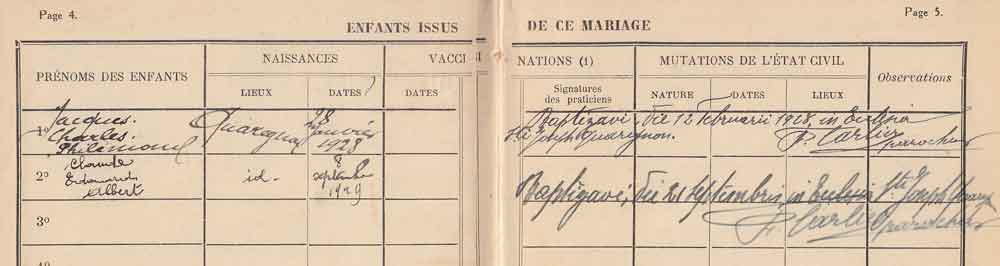 Page 4.
Page 5.
ENFANTS ISSUS DE CE MARIAGE
PRÉNOMS DES ENFANTS
NAISSANCES
VACCI
NATIONS (1)
MUTATIONS DE L'ÉTAT CIVIL
Observations
LIEUX
DATES
DATES
Signatures
des praticiens
NATURE
DATES
LIEU
1º
Jacques.
Charles.
Philémond
Quaregnon
28
Janvier
1928
Baptizavi, die 12 Februarii 1928, in Ecclesia
Sti Joseph Quaregnon.
P. Carlier
parochus
2º
Claude
Edouard
Albert
id.
8
septembre
1929
Baptizavi, die 21 septembris, in Ecclesia Sti Joseph
P. Carlier parochus
3º
4º